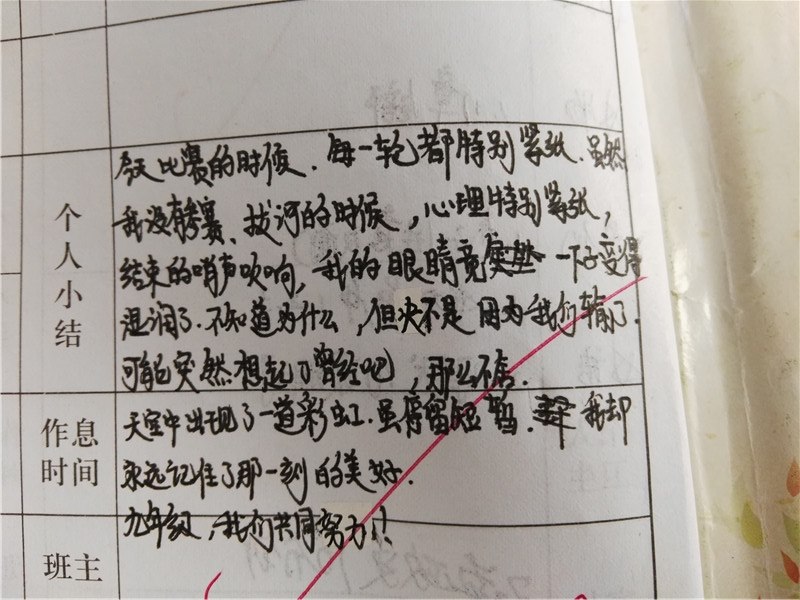 个人小结
今天比赛的时候.每一轮都特别紧张.虽然
我没有参赛、拔河的时候,心理特别紧张,
结束的哨声吹响,我的眼睛竟 一下子变得
湿润了.不知道为什么,但决不是因为我们输了.
可能突然想起了曾经吧,那么不舍.
作息时间
天空中出现了一道彩虹.虽停留短暂. 我却
永远记住了那一刻的美好.
九年级,我们共同努力!!
班主